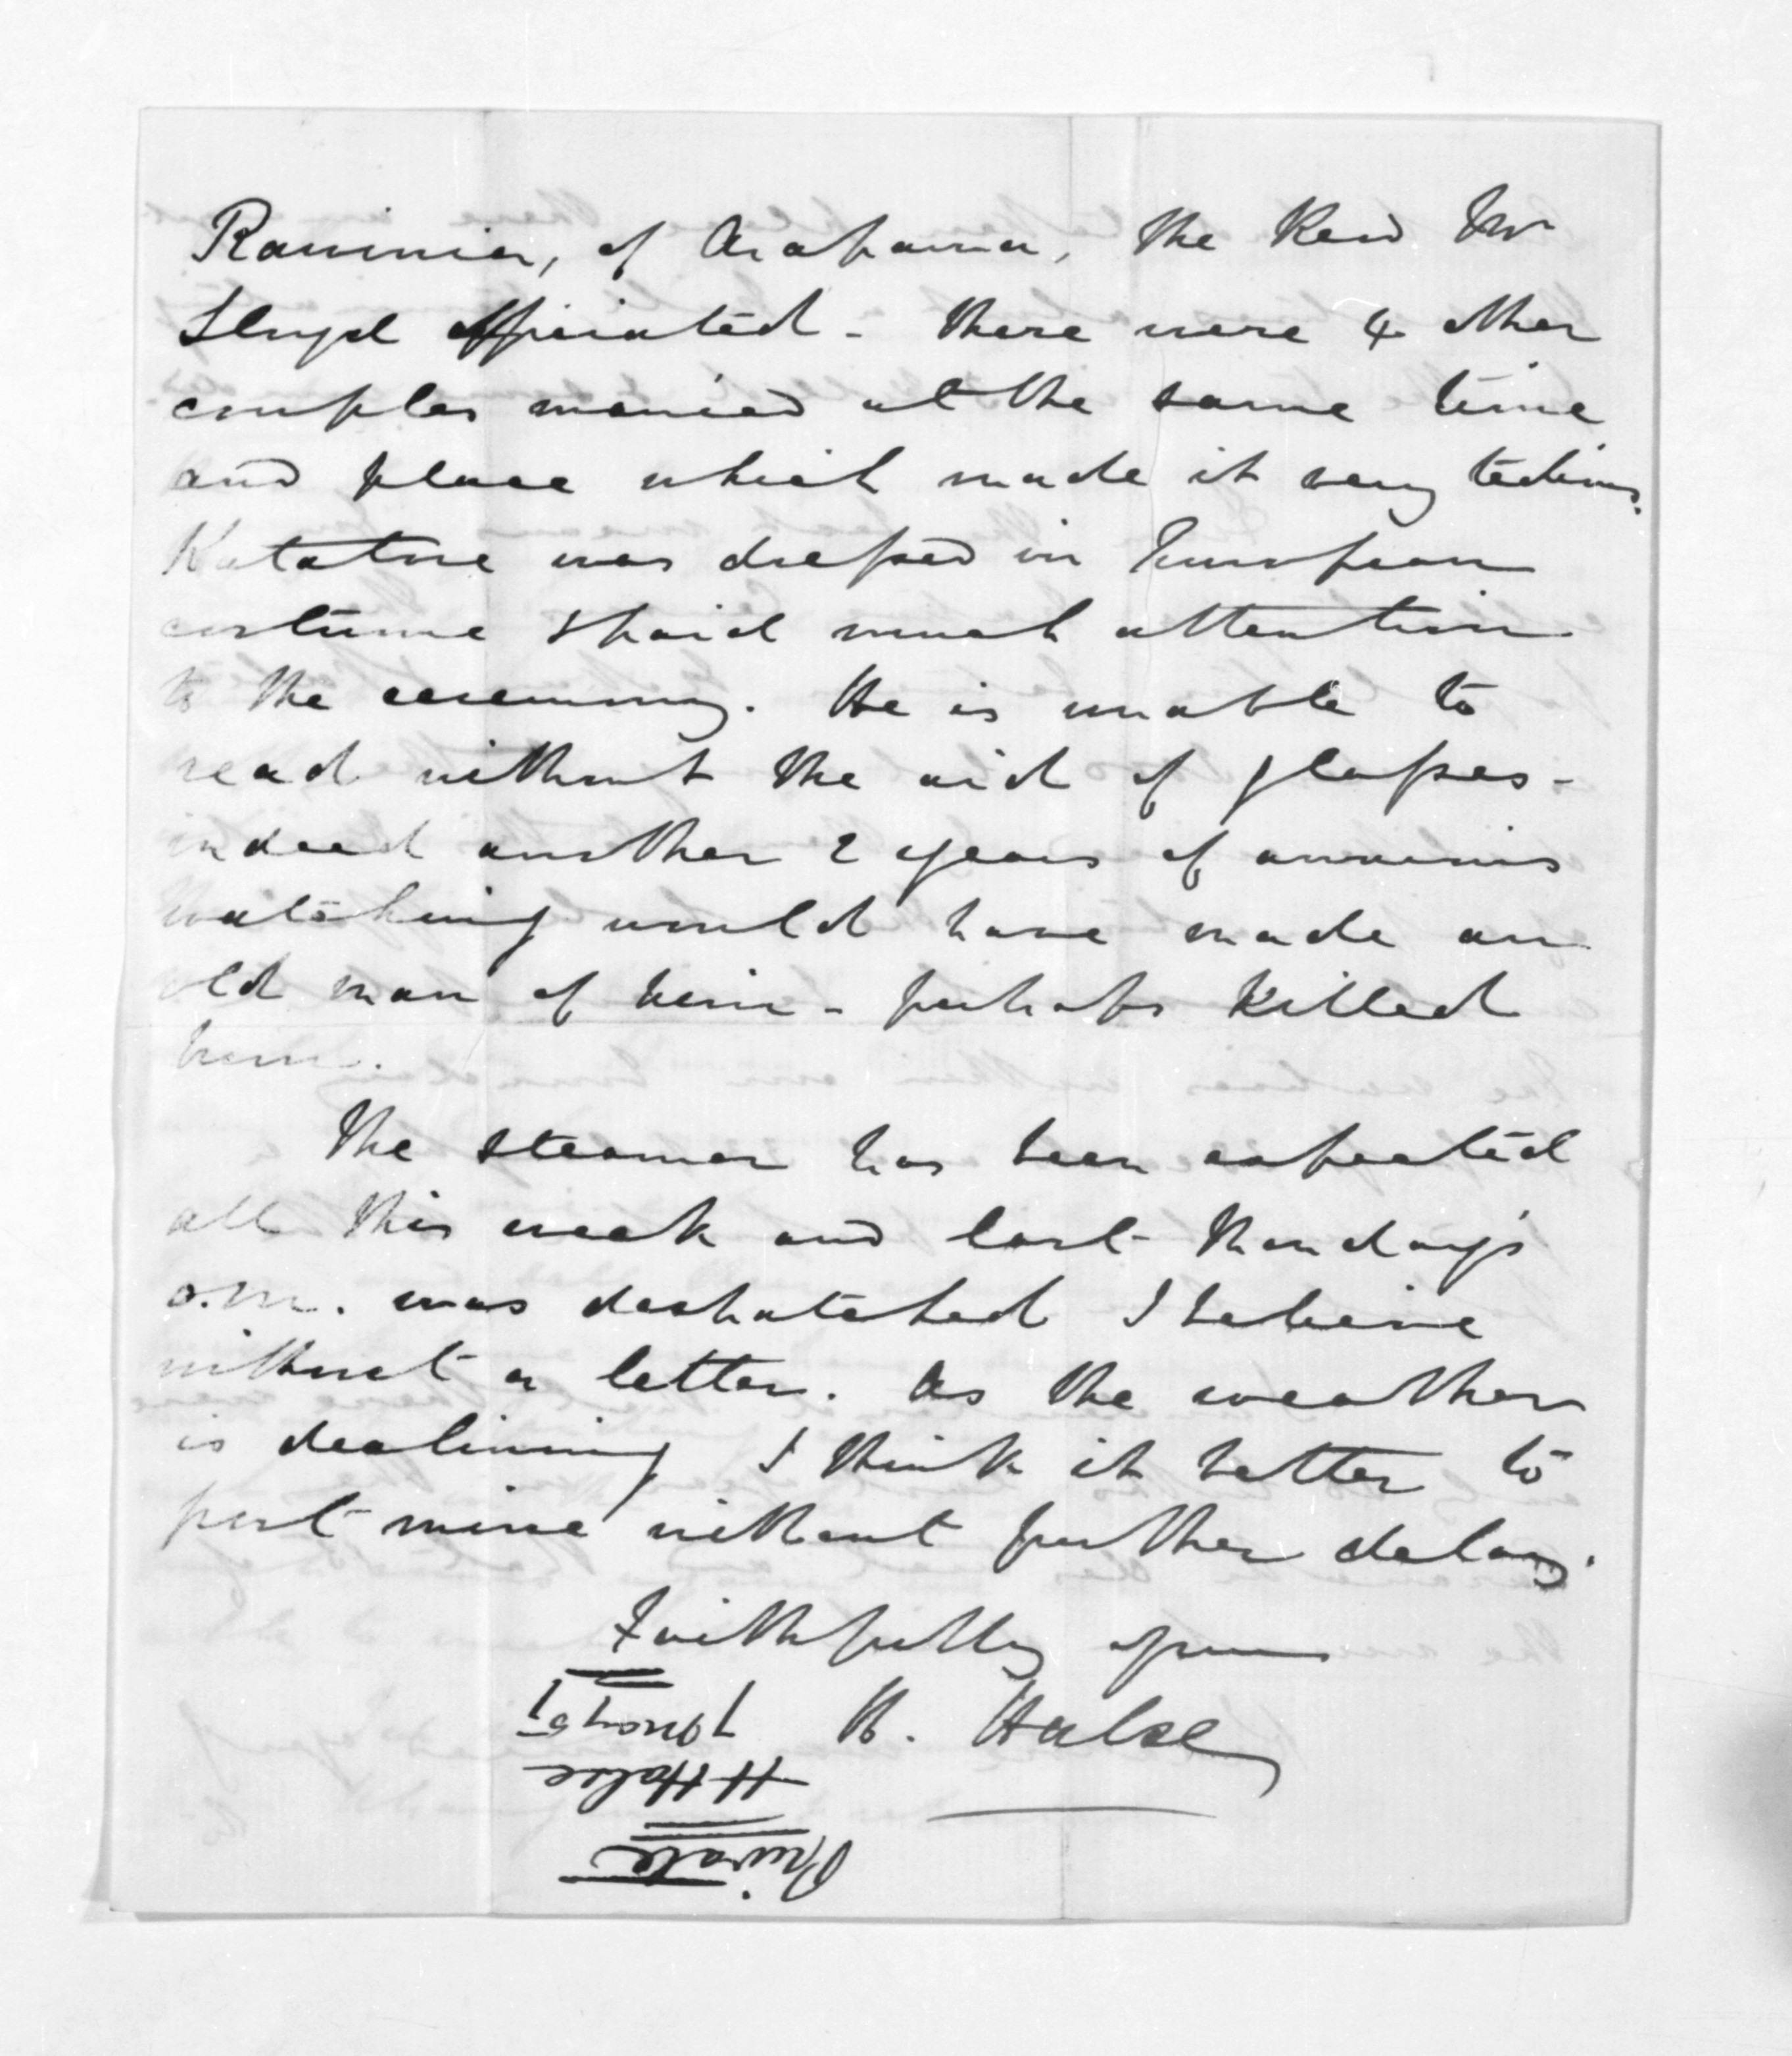 Rawinia, of Arapawa, the Revd Mr
Lloyd officiated - There were 4 other
couples married at the same time
and place which made it very tedious.
Katatore was dressed in European
costume & paid much attention
to the ceremony. He is unable to
read without the aid of glasses -
indeed another 2 years of anxious
watching would have made an
old man of him - perhaps killed
him.
The steamer has been expected
all this week and last Thursday's
o.m. was despatched I believe
without a letter. As the weather
is declining I think it better to
post mine without further delay.
Faithfully yours
H. Halse
Private
H Halse